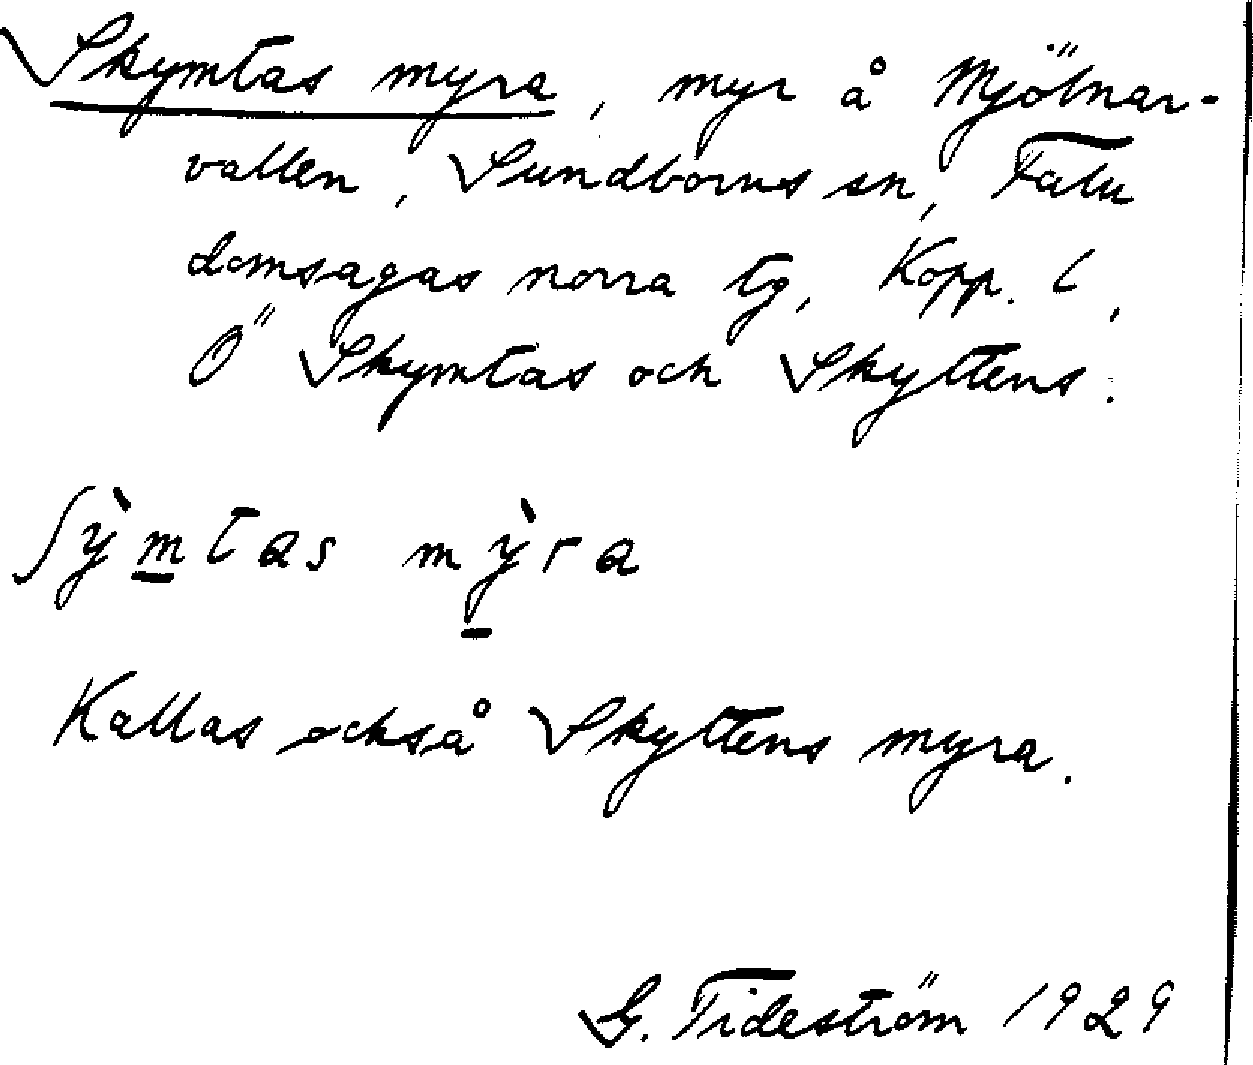 Skymtas myra, myr å Mjölnar-
vallen, Sundborns sn, Falu
domsagas norra tg, Kopp. l,
Ö Skymtas och Skyttens.
ʃỳmtas mỳra
Kallas också Skyttens myra.
G. Tideström 1929